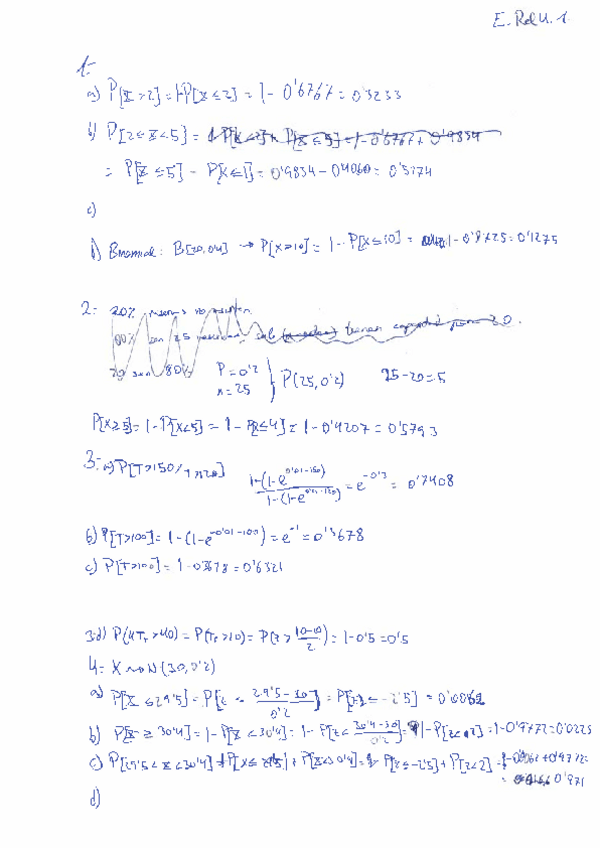 E. Rel U. 1
1-
a) P[X>2] = 1-P[X≤2] = 1 - 0'6767 = 0'3233
b) P[2≤X<5] = 1-P[X<2] + P[X≤5] = 1-0'6767 + 0'9834
= P[X≤5] - P[X≤1] = 0'9834 - 0'4060 = 0'5774
c)
d) Binomial: B[20,0'4] → P[X≥10] = 1- P[X≤10] = 1-0'8725 = 0'1275
2= 20%
100% son 25 tienen capacidad para 20.
20 son 80% P=0'2
n=25 } P(25,0'2) 25-20=5
P[X≥5] = 1-P[X<5] = 1 - P[X≤4] = 1-0'4207 = 0'5793
3= a) P[T>150/T>120] = e^-0'3 = 0'7408
b) P[T>100] = 1-(1-e^-0'01-100) = e^-1 = 0'3678
c) P[T>100] = 1-0'3678 = 0'6321
3.d) P(4Tr >40) = P(Tr >10) = P(z > 10-10/2) = 1-0'5 = 0'5
4= X ~ N (30,0'2)
a) P[X ≤29'5] = P[z ≤ 29'5-30/0'2] = P[z ≤ -2'5] = 0'0062
b) P[X ≥ 30'4] = 1-P[X <30'4] = 1- P[z< 30'4-30/0'2] = 1-P[z<2] = 1-0'9772 = 0'0228
c) P[29'5 < X <30'4] = P[X≤ 29'5] + P[X<30'4] = P[z≤-2'5] + P[z<2] = 1-0'0062+0'9772=
= 0'971
d)